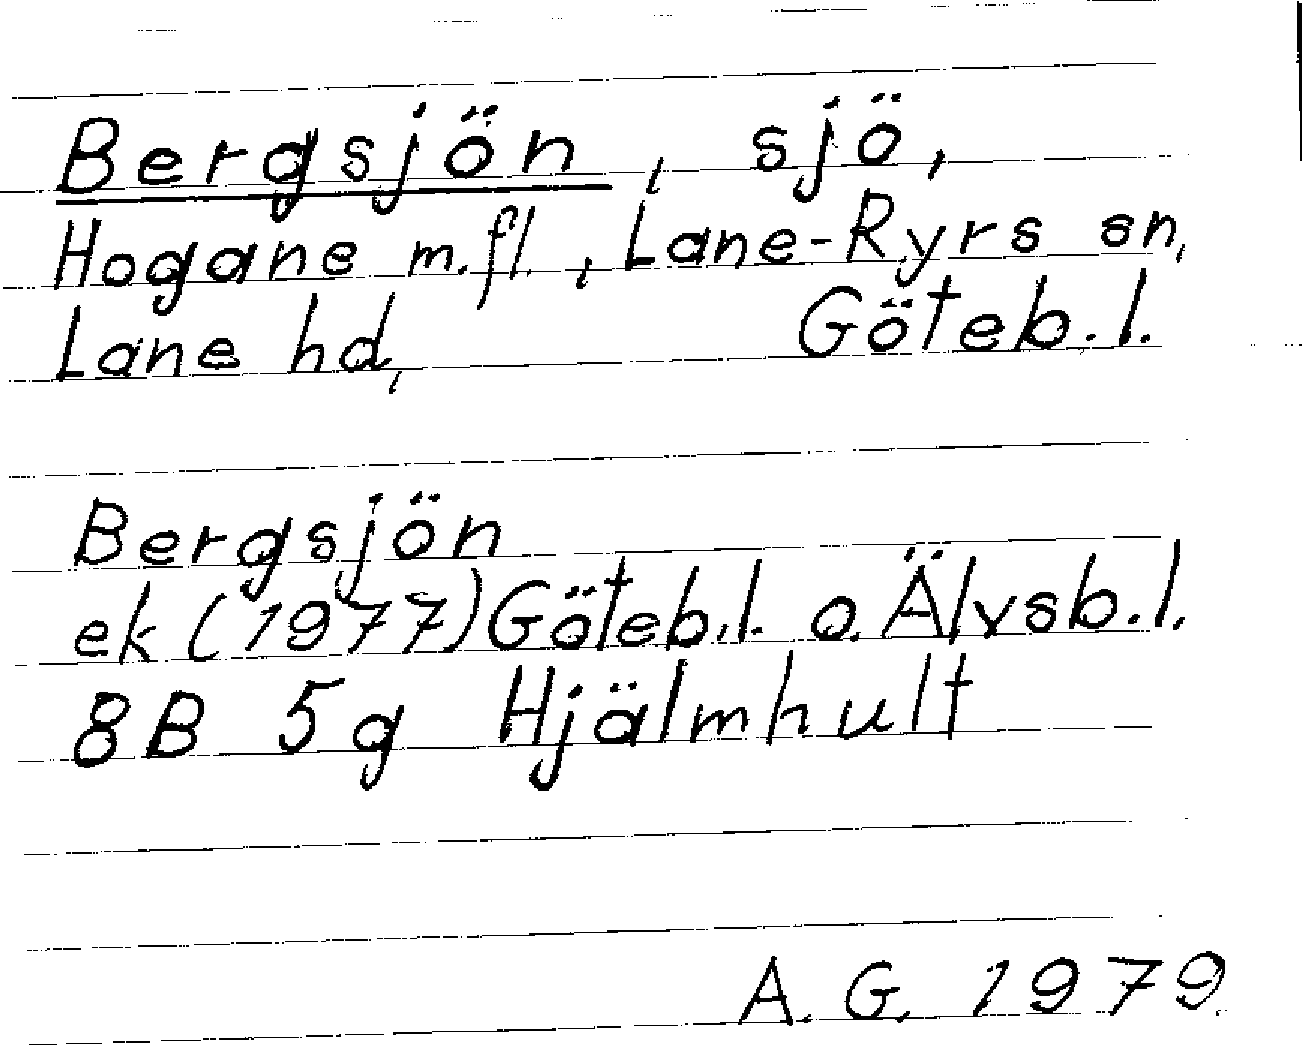 Bergsjön, sjö,
Hogane m.fl., Lane-Ryrs sn,
Lane hd, Göteb.l.
Bergsjön
ek (1977) Göteb.l. o. Älvsb.l.
8B 5g Hjälmhult
A. G. 1979.